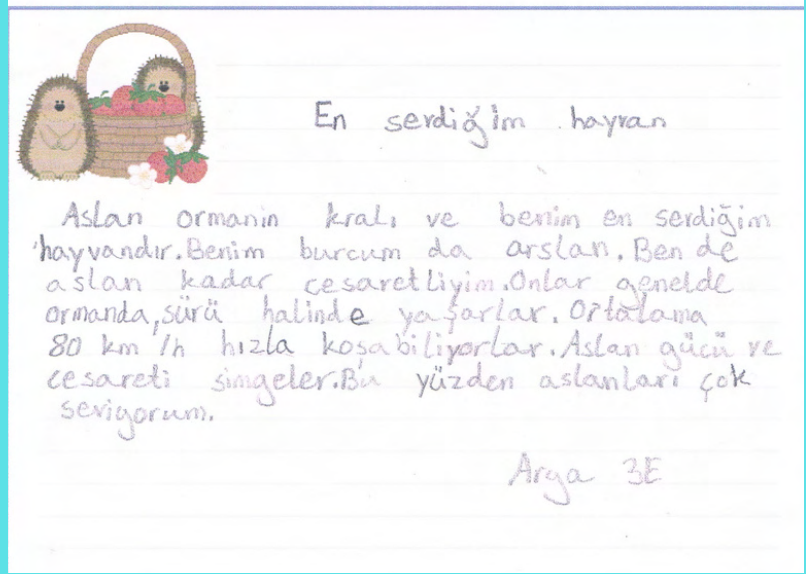 En serdiğim hayran
Aslan ormanin kralı ve benim en serdiğim
hayvandır. Benim burcum da arslan. Ben de
aslan kadar cesaretliyim. Onlar genelde
ormanda, sürü halinde yaşarlar. Ortalama
80 km/h hızla koşabiliyorlar. Aslan gücü ve
cesareti simgeler. Bu yüzden aslanları çok
seviyorum.
Arya 3E